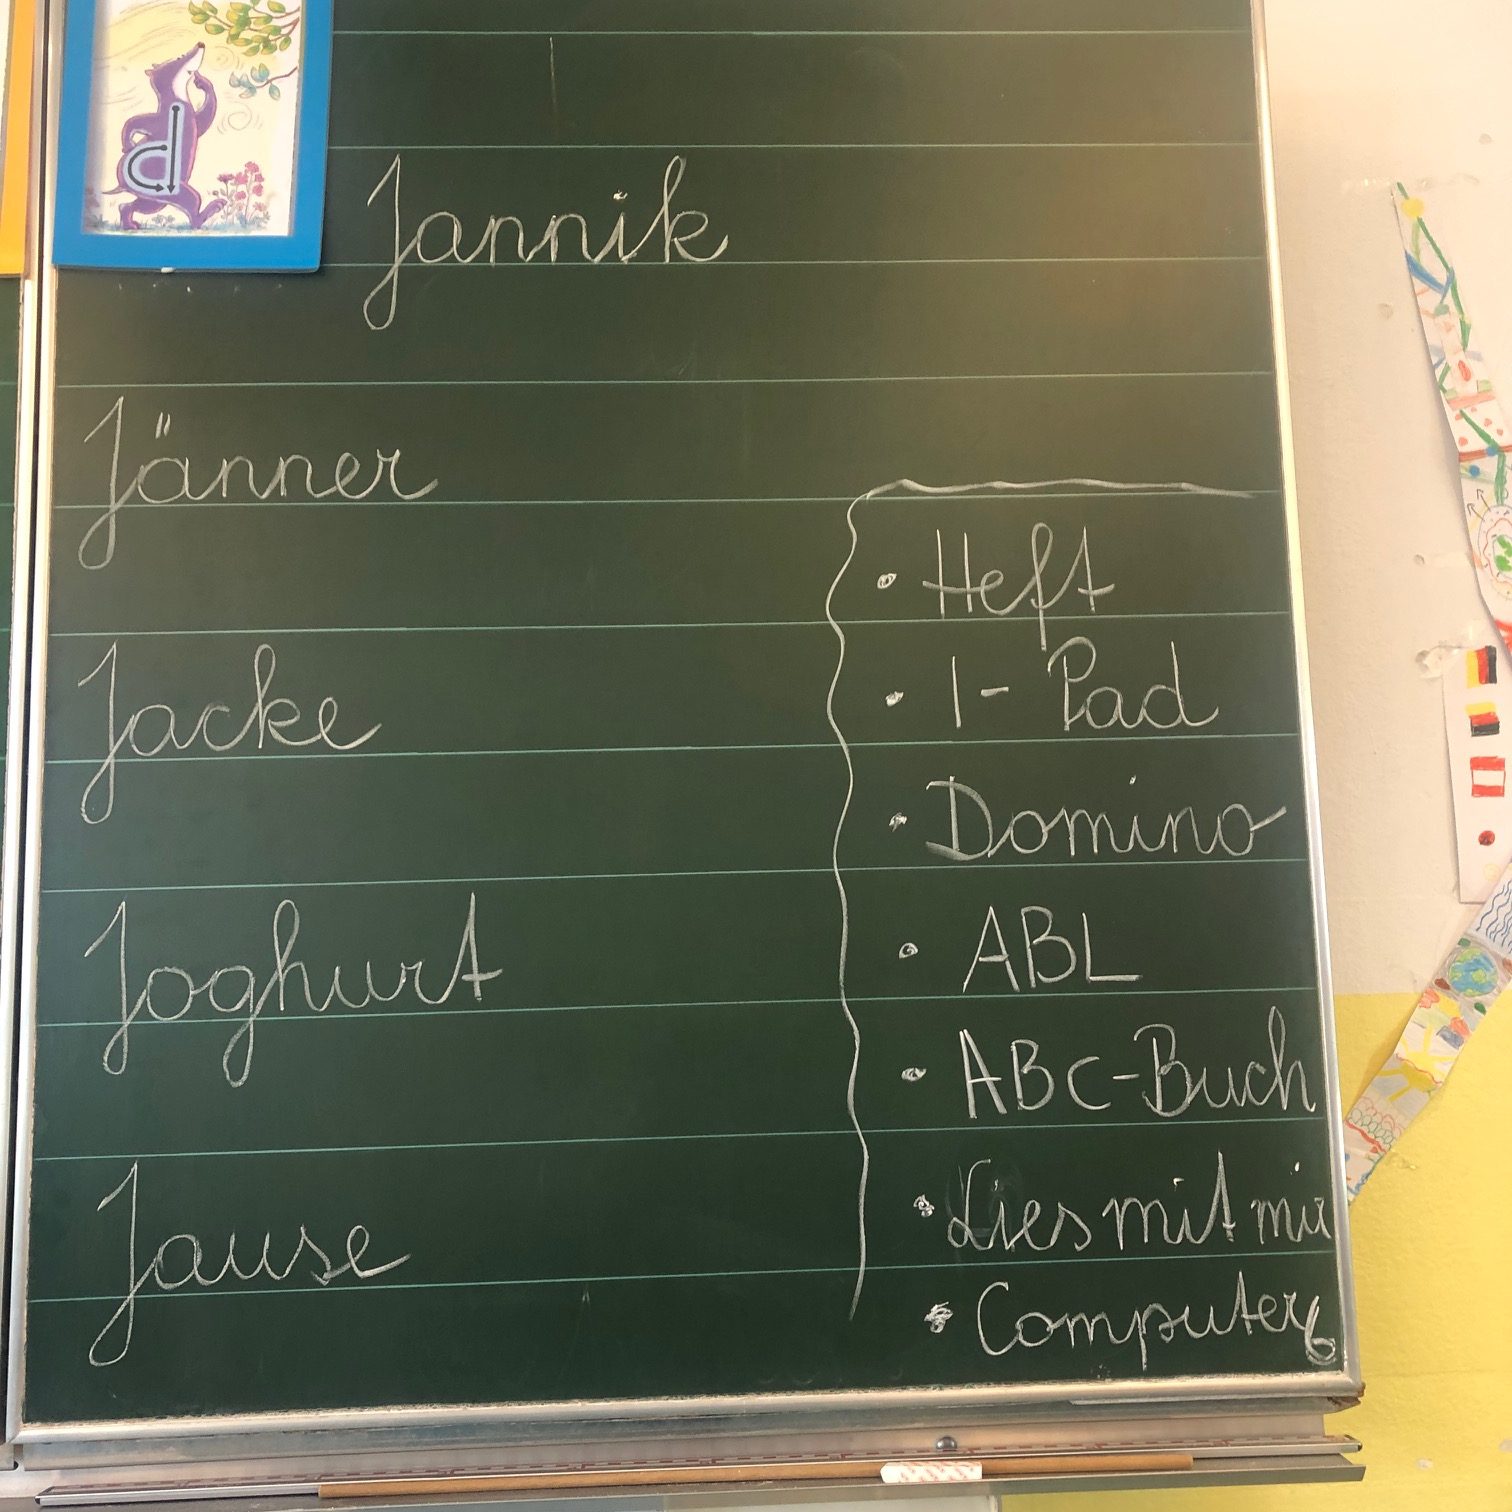 d
Jannik
Jänner
Jacke
Joghurt
Jause
• Heft
• I-Pad
• Domino
• ABL
• ABC-Buch
• Lies mit mir
• Computer 6